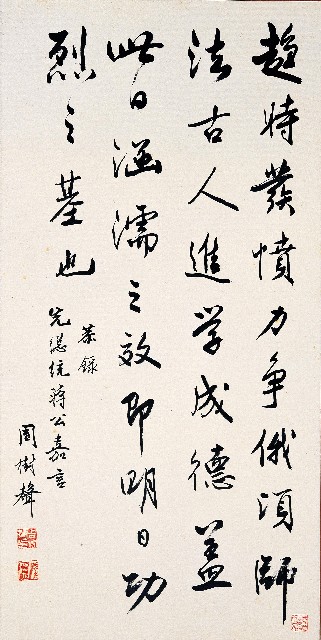 趁時發憤力爭俄頃師
法古人進學成德蓋
此日涵濡之效即明日功
烈之基也
恭錄
先總統蔣公嘉言
周樹聲